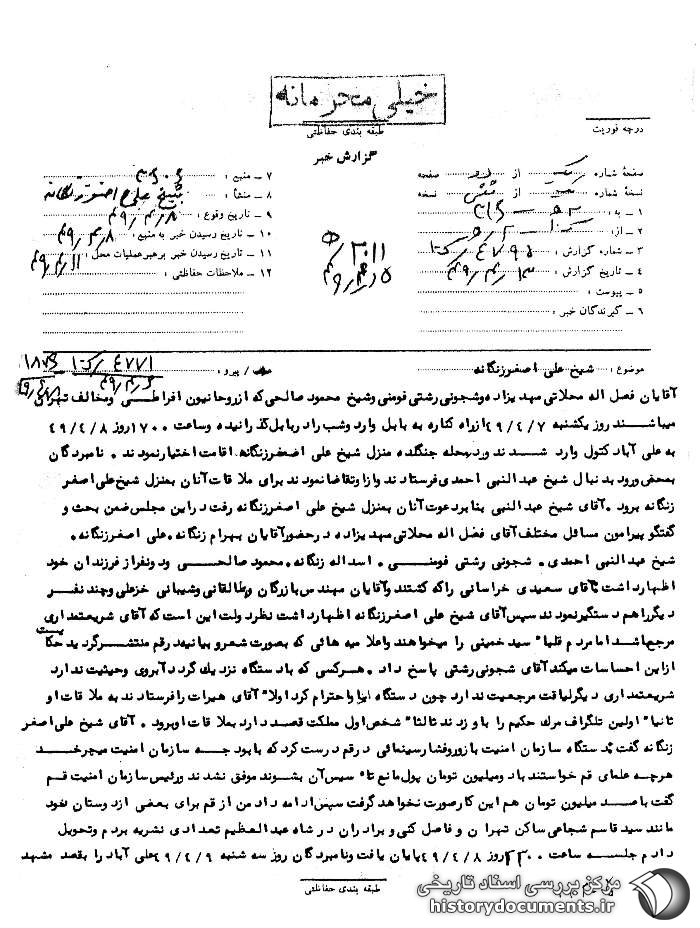 خیلی محرمانه
طبقه بندی حفاظتی
درجه فوریت
گزارش خبر
صفحهٔ شماره یک از دو صفحه
نسخهٔ شماره از شش نسخه
۱ ـ به : ۳۱۶
۲ ـ از :
۳ ـ شماره گزارش :
۴ ـ تاریخ گزارش : ۴۹/۴/۱۳
۵ ـ پیوست :
۶ ـ گیرندگان خبر :
۷ ـ منبع :
۸ ـ منشأ : شیخ علی اصغر زنگانه
۹ ـ تاریخ وقوع : ۴۹/۴/۸
۱۰ ـ تاریخ رسیدن خبر به منبع : ۴۹/۴/۸
۱۱ ـ تاریخ رسیدن خبر برهبر عملیات محل : ۴۹/۴/۱۱
۱۲ ـ ملاحظات حفاظتی :
موضوع : شیخ علی اصغر زنگانه / پیرو :
آقایان فضل اله محلاتی مهدیزاده و شجونی رشتی فومنی و شیخ محمود صالحی که از روحانیون افراطی و مخالف تهرانی
میباشند روز یکشنبه ۴۹/۴/۷ از راه کناره به بابل وارد و شب را در بابل گذرانیده و ساعت ۱۷۰۰ روز ۴۹/۴/۸
به علی آباد کتول وارد شدند و در محله جنگلده منزل شیخ علی اصغر زنگانه اقامت اختیار نمودند . نامبردگان
بمحض ورود بدنبال شیخ عبدالنبی احمدی فرستادند و از او تقاضا نمودند برای ملاقات آنان بمنزل شیخ علی اصغر
زنگانه برود . آقای شیخ عبدالنبی بنا بر دعوت آنان بمنزل شیخ علی اصغر زنگانه رفت در این مجلس ضمن بحث و
گفتگو پیرامون مسائل مختلف آقای فضل اله محلاتی مهدیزاده در حضور آقایان بهرام زنگانه . علی اصغر زنگانه .
شیخ عبدالنبی احمدی . شجونی رشتی فومنی . اسداله زنگانه . محمود صالحی و دو نفر از فرزندان خود
اظهار داشت آقای سعیدی خراسانی را که کشتند و آقایان مهندس بازرگان و طالقانی و شیبانی خزعلی و چند نفر
دیگر را هم دستگیر نمودند سپس آقای شیخ علی اصغر زنگانه اظهار داشت نظر دولت این است که آقای شریعتمداری
مرجع باشد اما مردم قلبا" سید خمینی را میخواهند و اعلامیه هائی که بصورت شعر و بیانیه در قم منتشر گردید حکایت
از این احساسات میکند آقای شجونی رشتی پاسخ داد . هر کسی که با دستگاه نزدیک گردد آبروی و حیثیت ندارد
شریعتمداری دیگر لیاقت مرجعیت ندارد چون دستگاه او را احترام کرد اولا" آقای هیرات را فرستادند به ملاقات او
ثانیا" اولین تلگراف مرگ حکیم را با و زدند ثالثا" شخص اول مملکت قصد دارد بملاقات او برود . آقای شیخ علی اصغر
زنگانه گفت دستگاه سازمان امنیت با زور و فشار سینمائی در قم درست کرد که با بودجه سازمان امنیت میچرخد
هر چه علمای قم خواستند با دو میلیون تومان پول مانع تأسیس آن بشوند موفق نشدند و رئیس سازمان امنیت قم
گفت با صد میلیون تومان هم این کار صورت نخواهد گرفت سپس ادامه داد من از قم برای بعضی از دوستان خود
مانند سید قاسم شجاعی ساکن تهران و فاضل کنی و برادران در شاه عبدالعظیم تعدادی نشریه بردم و تحویل
دادم جلسه ساعت روز ۴۹/۴/۸ پایان یافت و نامبردگان روز سه شنبه ۴۹/۴/۹ علی آباد را بقصد مشهد
طبقه بندی حفاظتی
مرکز بررسی اسناد تاریخی
historydocuments.ir